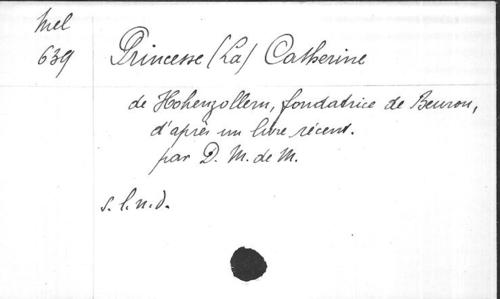 Mel
639
Princesse (La) Catherine
de Hohenzollern, fondatrice de Beuron,
d'après un livre récent.
par D. M. de M.
s.l.n.d.